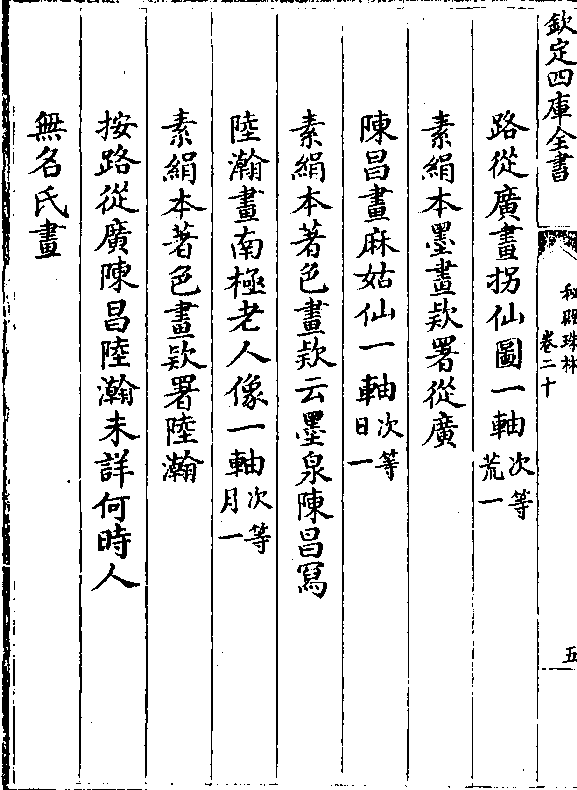 欽定四庫全書
秘殿珠林
卷二十
五
路從廣畫拐仙圖一軸次等荒一
素絹本墨畫欵署從廣
陳昌畫麻姑仙一軸次等日一
素絹本著色畫欵云墨泉陳昌冩
陸瀚畫南極老人像一軸次等月一
素絹本著色畫欵署陸瀚
按路從廣陳昌陸瀚未詳何時人
無名氏畫